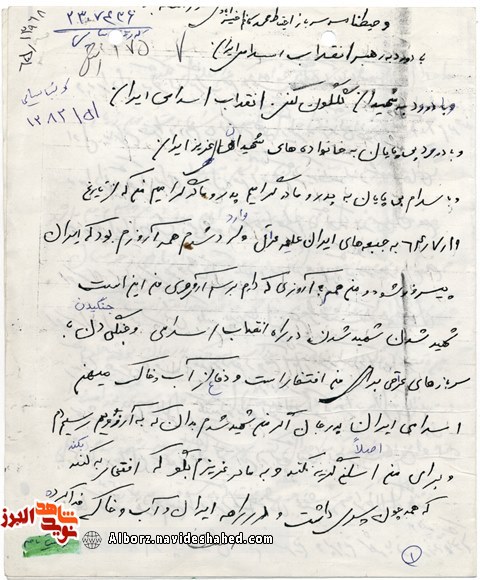 وصیتنامه سرباز
۲۳۰۷۴۳۶
با درود به رهبر انقلاب اسلامی ایران
و با درود به شهیدان گلگون کفن انقلاب اسلامی ایران
۱۳۸۳/۵/
و با درود بی پایان به خانواده های شهیدان عزیز ایران
و با سلام بی پایان به پدر و مادر گرامیم پدر و مادر گرامیم من که از تاریخ
به جبهه های ایران علیه عراق وارد شدم همه آرزوم بود که ایران
پیروز شود و من هم آرزوی که دارم برسم آرزوی من این است
شهید شدن شهید شدن در راه انقلاب اسلامی و جنگیدن با
سربازهای عراقی برای من افتخار است و دفاع از آب و خاک میهن
اسلامی ایران پدر جان اگر من شهید شدم بدان که به آرزویم رسیدم
و برای من اصلاً گریه نکند و به مادر عزیزم بگو که افتخار بکند
که همچون پسری داشت و در راه ایران و آب و خاک
۱
شاهد
نوید
البرز
Alborz.navideshahed.com